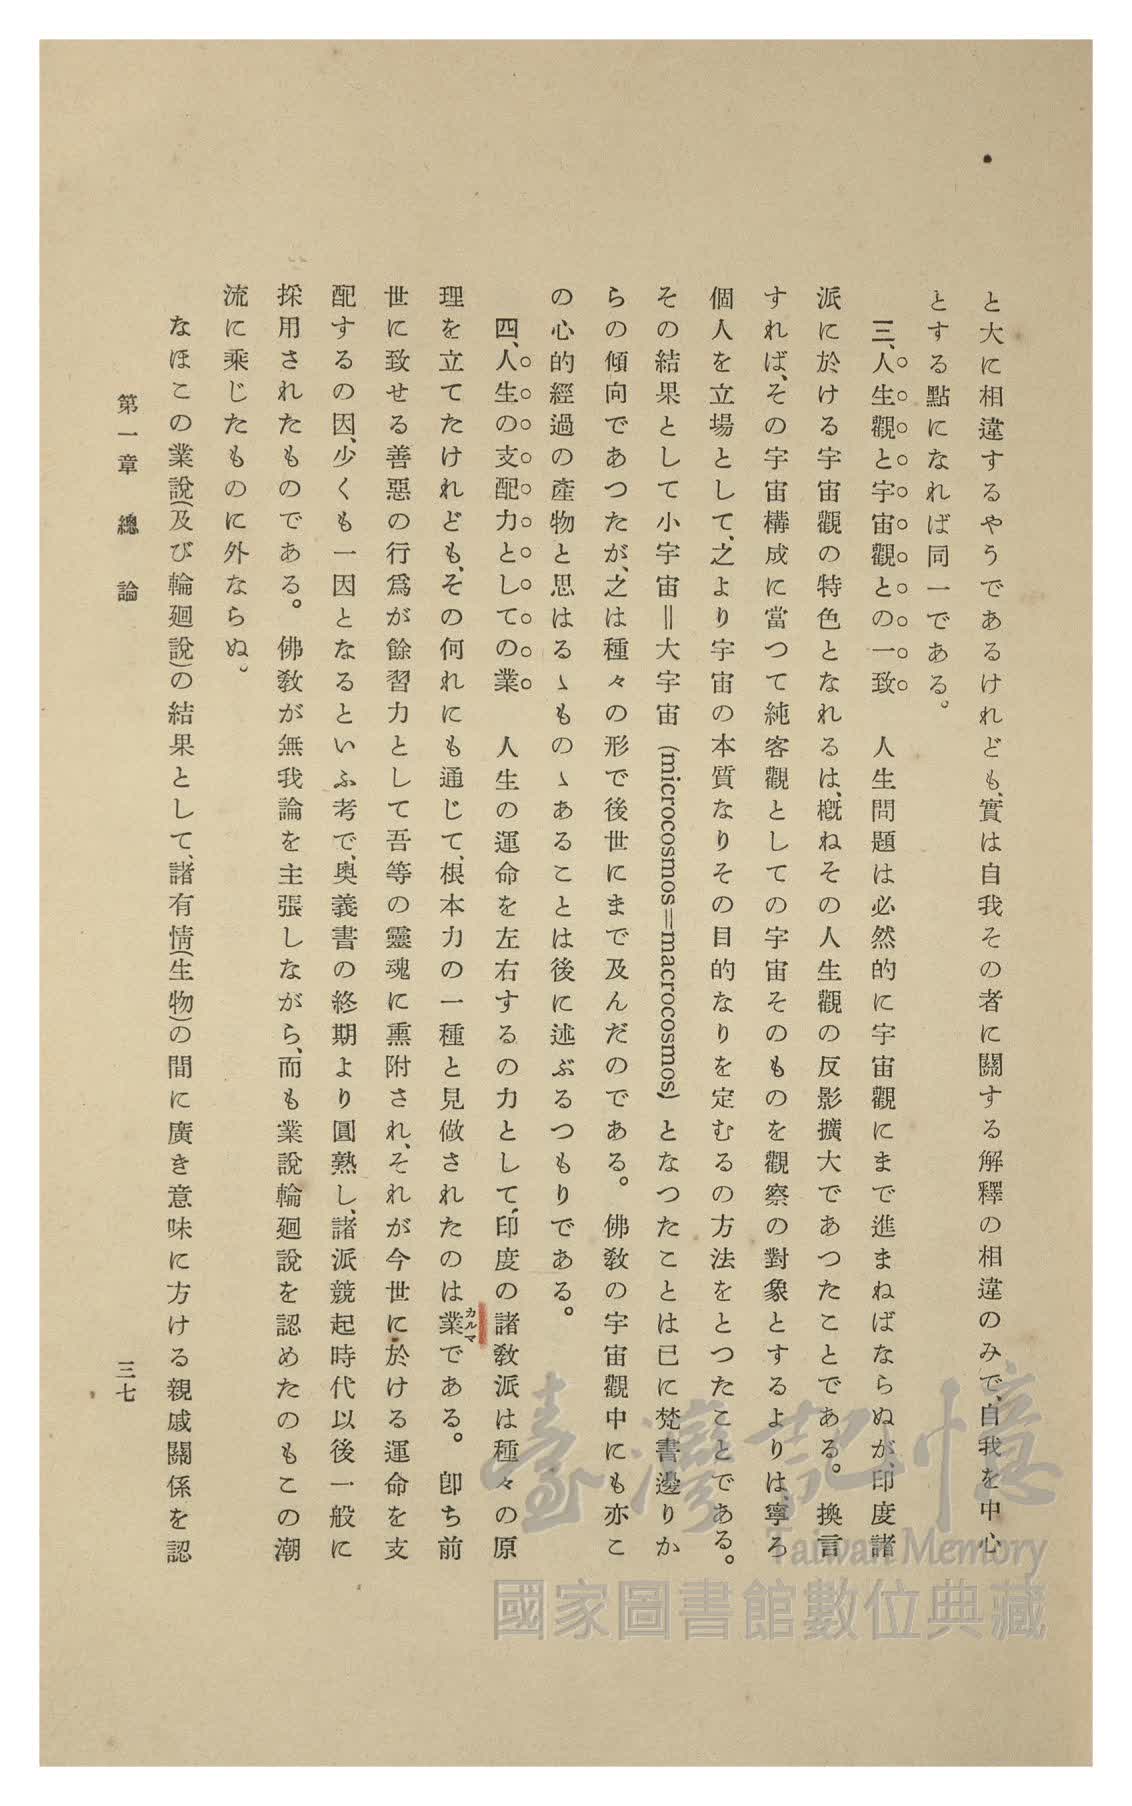 と大に相違するやうであるけれども、實は自我その者に關する解釋の相違のみで、自我を中心
とする點になれば同一である。
三、人生觀と宇宙觀との一致　人生問題は必然的に宇宙觀にまで進まねばならぬが、印度諸
派に於ける宇宙觀の特色となれるは、槪ねその人生觀の反影擴大であつたことである。換言
すれば、その宇宙構成に當つて純客觀としての宇宙そのものを觀察の對象とするよりは、寧ろ
個人を立場として、之より宇宙の本質なりその目的なりを定むるの方法をとつたことである。
その結果として小宇宙＝大宇宙 (microcosmos=macrocosmos) となつたことは已に梵書邊りか
らの傾向であつたが、之は種々の形で後世にまで及んだのである。佛敎の宇宙觀中にも亦こ
の心的經過の產物と思はるゝものゝあることは後に述ぶるつもりである。
四、人生の支配力としての業　人生の運命を左右するの力として、印度の諸敎派は種々の原
理を立てたけれども、その何れにも通じて、根本力の一種と見做されたのは業カルマである。卽ち前
世に致せる善惡の行爲が餘習力として吾等の靈魂に熏附され、それが今世に於ける運命を支
配するの因、少くも一因となるといふ考で、奧義書の終期より圓熟し、諸派競起時代以後一般に
採用されたものである。佛敎が無我論を主張しながら、而も業說輪廻說を認めたのもこの潮
流に乘じたものに外ならぬ。
なほこの業說(及び輪廻說)の結果として、諸有情(生物)の間に廣き意味に方ける親戚關係を認
第一章　總論
三七
臺灣記憶
Taiwan Memory
國家圖書館數位典藏